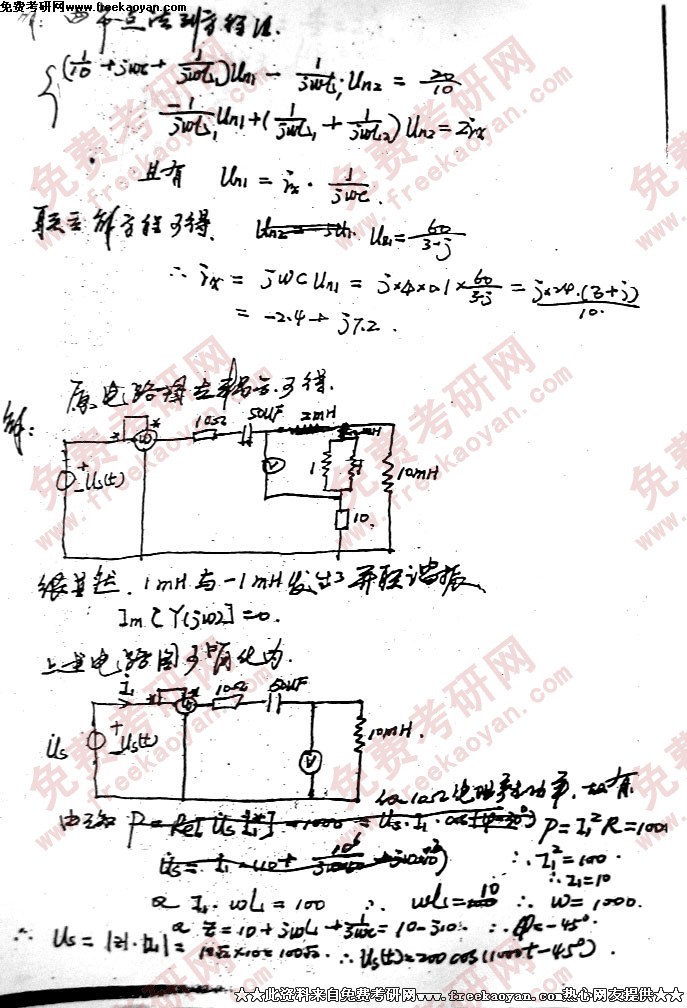 免费考研网
www.freekaoyan.com
解: 由节点法列方程组
(1/10 + jωc + 1/jωL₁)Un1 - 1/jωL₁·Un2 = 20/10
-1/jωL₁ Un1 + (1/jωL₁ + 1/jωL₂) Un2 = 2İx
且有 Un1 = İx · 1/jωc.
联立解方程可得. Un1 = 60/3-j
∴ İx = jωc Un1 = j×4×0.1×60/3-j = j×24·(3+j)/10.
= -2.4 + j7.2.
解: 原电路 可得.
10Ω 50uF 2mH
+ Us(t) - V 1 10mH
10.
很显然. 1mH与-1mH发生了并联谐振
Im[Y(jω)]=0.
上述电路图可简化为.
İ₁ 10Ω 50uF
U̇s + Us(t) - A 10mH.
仅10Ω电阻产生功率. 故有
P=I₁²R=1000
∴ I₁²=100.
∴ I₁=10
I₁·ωL=100 ∴ ωL=10 ∴ ω=1000.
Z=10+jωL+1/jωc=10-j10. ∴ φ=-45°.
∴ Us=|Z|·|I₁|=10√2×10=100√2. ∴ Us(t)=200cos(1000t-45°).
★★此资料来自免费考研网www.freekaoyan.com热心网友提供★★